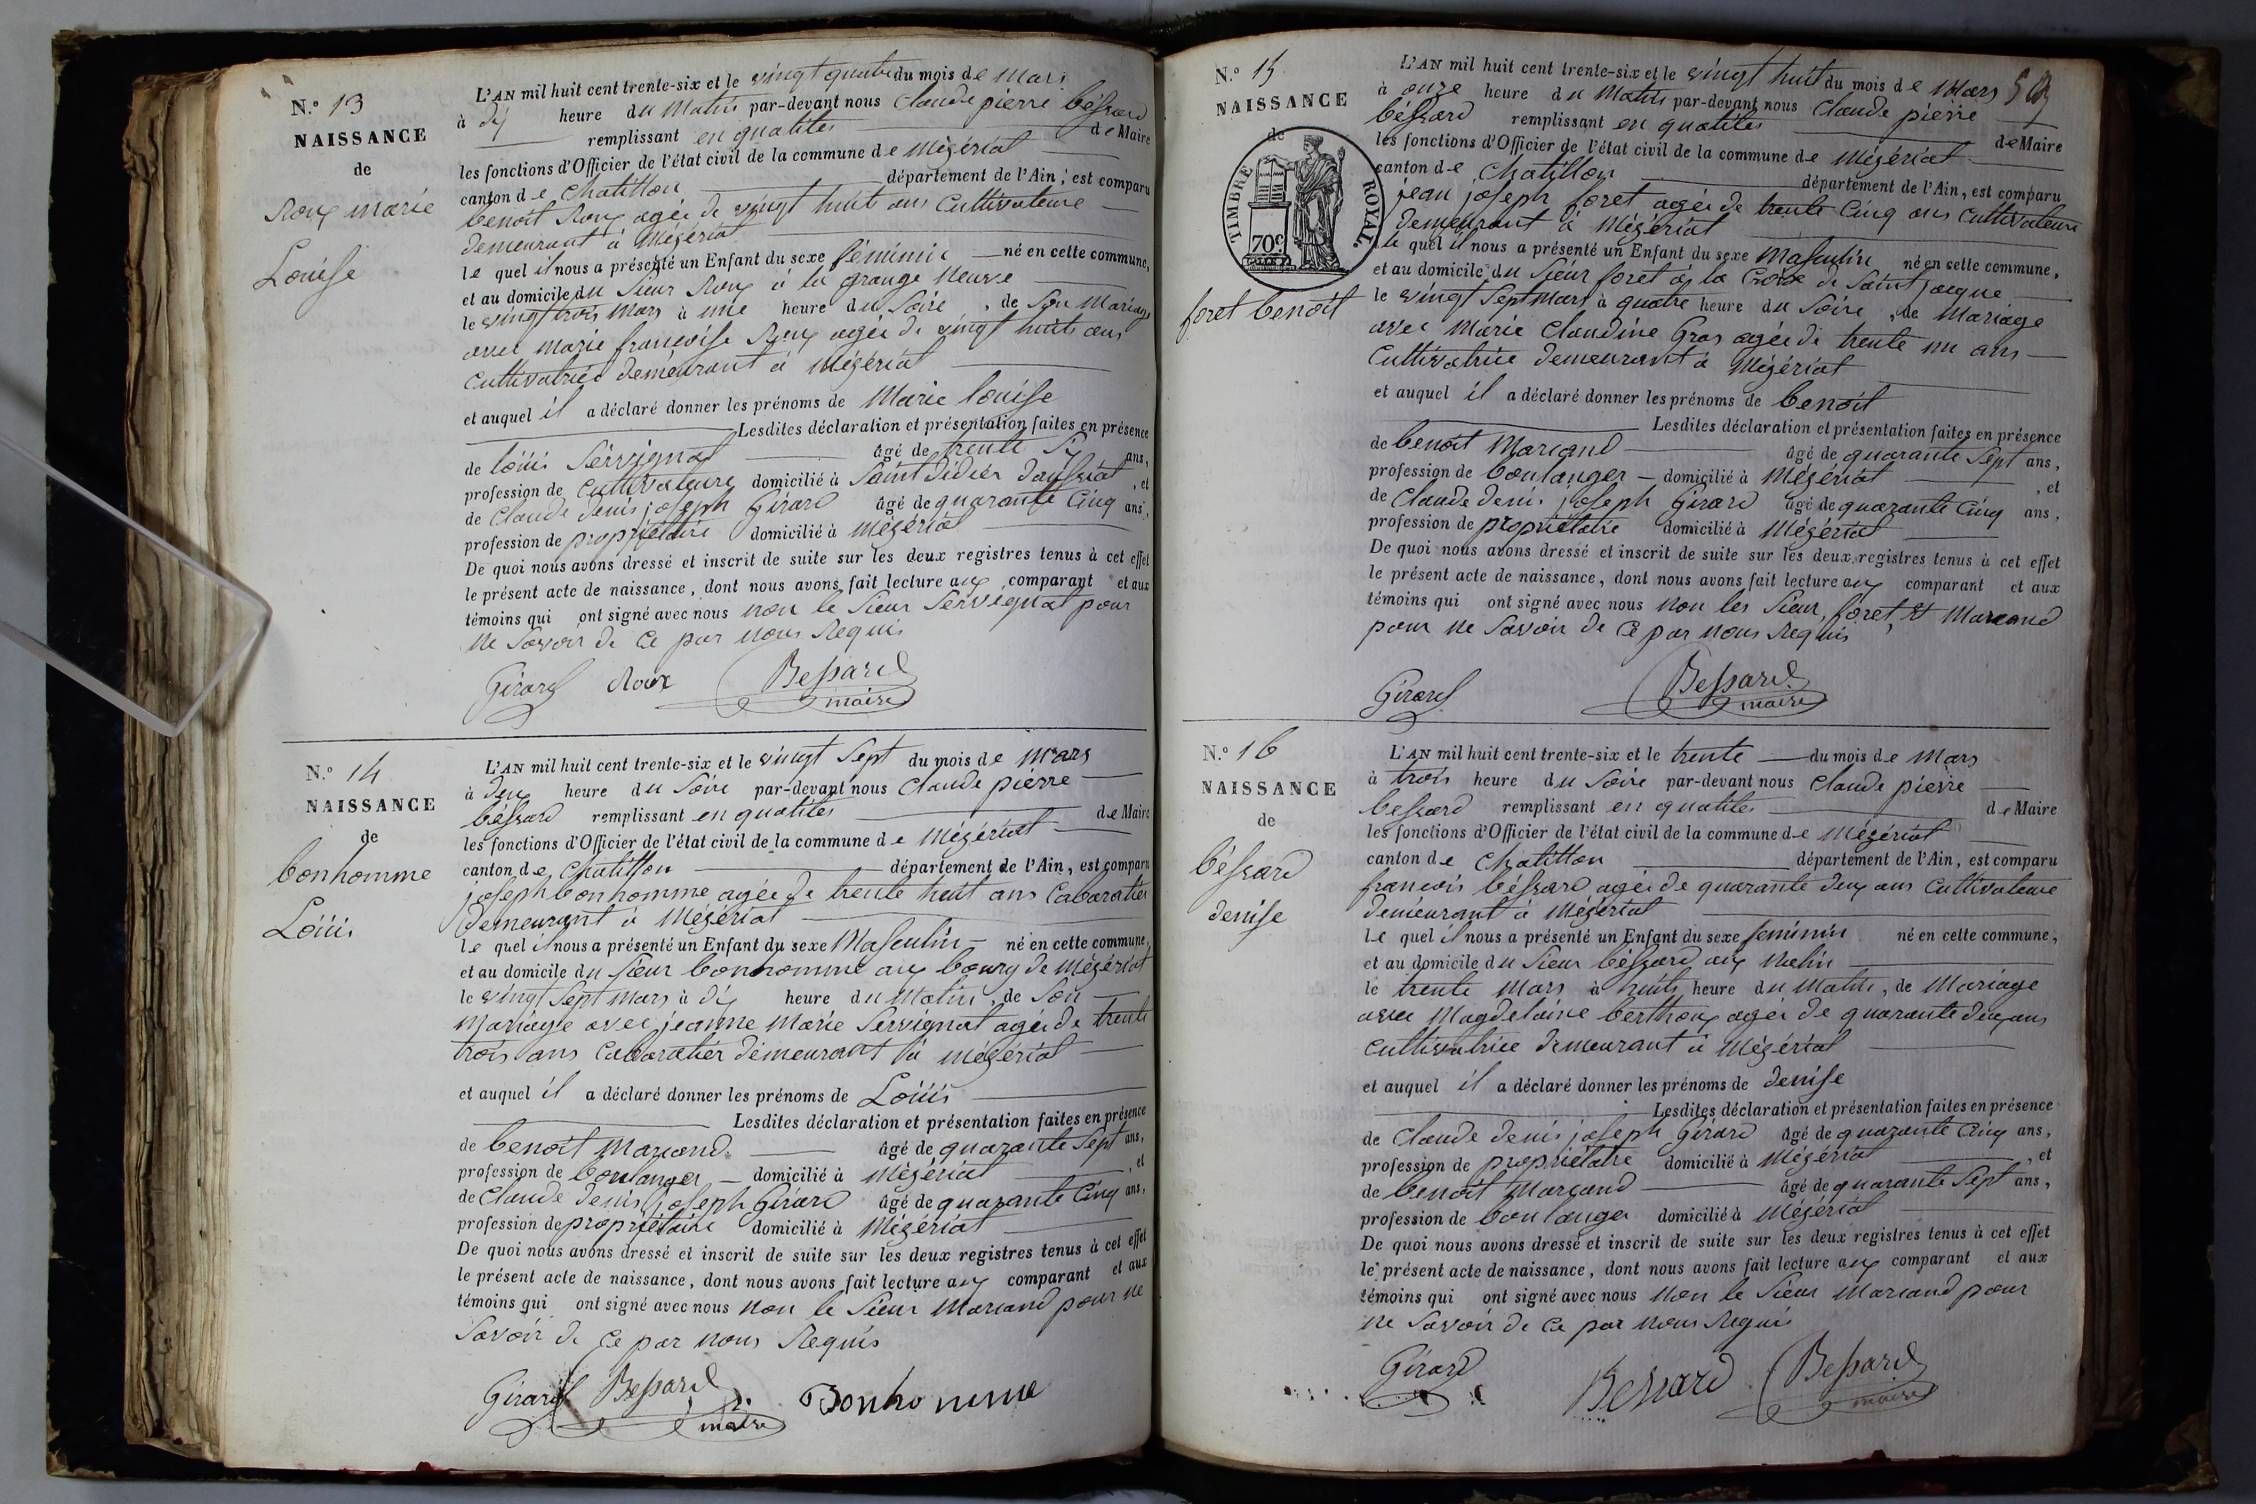 N.° 13
NAISSANCE
de
Roux marie
Louise
L'AN mil huit cent trente-six et le vingt quatre du mois de Mars
à dix heure du Matin par-devant nous Claude pierre béssard
remplissant en qualités de Maire
les fonctions d'Officier de l'état civil de la commune de Mézériat
canton de Chatillon département de l'Ain, est comparu
benoit Roux agée de vingt huit ans Cultivateure
demeurant à Mézériat
Le quel il nous a présenté un Enfant du sexe féminin né en cette commune,
et au domicile du Sieur Roux à la grange Neuve
le vingt trois Mars à une heure du Soire, de Son Mariage
avec Marie francoise Roux agée de vingt huits ans
Cultivatrice demeurant à Mézériat
et auquel il a déclaré donner les prénoms de Marie louise
Lesdites déclaration et présentation faites en présence
de loüis Servignat âgé de trente Six ans,
profession de Cultivateure domicilié à Saint Didier daussiat, et
de Claude denis joseph Girard âgé de quarante Cinq ans,
profession de propriétaire domicilié à Mézériat
De quoi nous avons dressé et inscrit de suite sur les deux registres tenus à cet effet
le présent acte de naissance, dont nous avons fait lecture aux comparant et aux
témoins qui ont signé avec nous non le Sieur Servignat pour
ne Savoir de ce par nous Requis
Girard Roux Bessard
maire
N.° 14
NAISSANCE
de
bonhomme
Loüis
L'AN mil huit cent trente-six et le vingt Sept du mois de Mars
à deux heure du Soire par-devant nous Claude pierre
béssard remplissant en qualités de Maire
les fonctions d'Officier de l'état civil de la commune de Mézériat
canton de Chatillon département de l'Ain, est comparu
joseph bonhomme agée de trente huit ans Cabaratier
demeurant à Mézériat
Le quel il nous a présenté un Enfant du sexe Masculin né en cette commune,
et au domicile du Sieur bonhomme aux bourg de Mézériat
le vingt Sept Mars à dix heure du Matin, de Son
Mariage avec jeanne Marie Servignat agée de trente
trois ans Cabaratiér demeurant à Mézériat
et auquel il a déclaré donner les prénoms de Loüis
Lesdites déclaration et présentation faites en présence
de benoit Marcand âgé de quarante Sept ans,
profession de boulanger domicilié à Mézériat, et
de Claude denis joseph Girard âgé de quarante Cinq ans,
profession de propriétaire domicilié à Mézériat
De quoi nous avons dressé et inscrit de suite sur les deux registres tenus à cet effet
le présent acte de naissance, dont nous avons fait lecture aux comparant et aux
témoins qui ont signé avec nous Non le Sieur Marcand pour ne
Savoir de ce par nous Requis
Girard Bessard Bonhomme
maire
N.° 15
NAISSANCE
de
TIMBRE ROYAL.
70c
foret benoit
L'AN mil huit cent trente-six et le vingt huit du mois de Mars
à onze heure du Matin par-devant nous Claude pierre
béssard remplissant en qualités de Maire
les fonctions d'Officier de l'état civil de la commune de Mézériat
canton de Chatillon département de l'Ain, est comparu
jean joseph foret agée de trente Cinq ans Cultivateure
demeurant à Mézériat
Le quel il nous a présenté un Enfant du sexe Masculin né en cette commune,
et au domicile du Sieur foret à la Croix de Saint jacque
le vingt Sept Mars à quatre heure du Soire, de Mariage
avec Marie Claudine Gras agée de trente un ans
Cultivatrice demeurant à Mézériat
et auquel il a déclaré donner les prénoms de benoit
Lesdites déclaration et présentation faites en présence
de benoit Marcand âgé de quarante Sept ans,
profession de boulanger domicilié à Mézériat, et
de Claude denis joseph Girard âgé de quarante Cinq ans,
profession de propriétaire domicilié à Mézériat
De quoi nous avons dressé et inscrit de suite sur les deux registres tenus à cet effet
le présent acte de naissance, dont nous avons fait lecture aux comparant et aux
témoins qui ont signé avec nous Non les Sieur, foret, et Marcand
pour ne Savoir de ce par nous Requis
Girard Bessard
maire
N.° 16
NAISSANCE
de
béssard
denise
L'AN mil huit cent trente-six et le trente du mois de Mars
à trois heure du Soire par-devant nous Claude pierre
bessard remplissant en qualités de Maire
les fonctions d'Officier de l'état civil de la commune de Mézériat
canton de Chatillon département de l'Ain, est comparu
francois béssard agée de quarante deux ans Cultivateure
demeurant à Mézériat
Le quel il nous a présenté un Enfant du sexe feminin né en cette commune,
et au domicile du Sieur béssard aux Molin
le trente Mars à huits heure du Matin, de Mariage
avec Magdelaine berthoux agée de quarante deux ans
Cultivatrice demeurant à Mézériat
et auquel il a déclaré donner les prénoms de denise
Lesdites déclaration et présentation faites en présence
de Claude denis joseph Girard âgé de quarante Cinq ans,
profession de propriétaire domicilié à Mézériat, et
de benoit Marcand âgé de quarante Sept ans,
profession de boulanger domicilié à Mézériat
De quoi nous avons dressé et inscrit de suite sur les deux registres tenus à cet effet
le présent acte de naissance, dont nous avons fait lecture aux comparant et aux
témoins qui ont signé avec nous Non le Sieur Marcand pour
ne Savoir de ce par nous Requis
Girard Bessard Bessard
maire